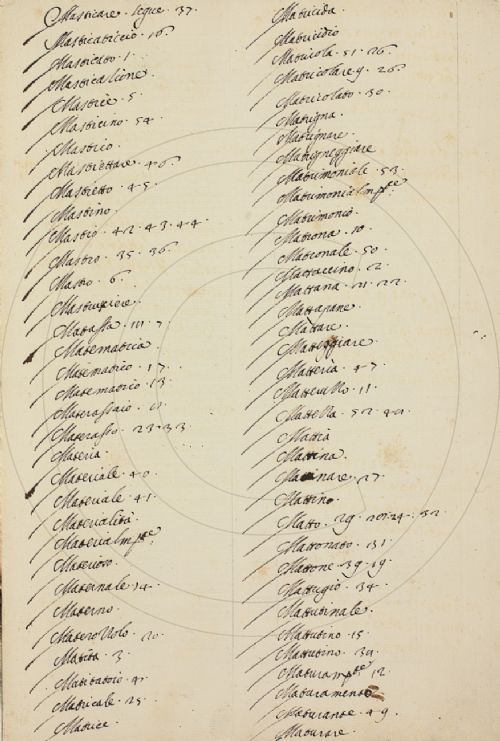 Masticare. segue. 37.
Masticaticcio. 16.
Masticato. 1.
Masticazione.
Mastice. 5.
Masticino. 54.
Mastico.
Mastiettare. 46.
Mastietto. 45.
Mastino.
Mastio. 42. 43. 44.
Mastro. 35. 36.
Mastro. 6.
Matassa.
Matematica.
Matematico. 17.
Matematico. 13.
Materassaio.
Materasso. 23. 33
Materia.
Materiale. 40.
Materiale. 41.
Materialità.
Materialmpte.
Materioso.
Maternale. 14.
Materno.
Materozzolo. 20.
Matita. 3.
Matitatoio.
Matricale. 25.
Matrice.
Matricida.
Matricidio
Matricola. 51. 26.
Matricolare. 26.
Matricolato. 30.
Matrigna.
Matrignare.
Matrigneggiare
Matrimoniale. 53.
Matrimonialmpte.
Matrimonio.
Matrona. 10.
Matronale. 50.
Mattaccino. 2.
Mattana. 21. 22.
Mattapane.
Mattare.
Matteggiare.
Matteria. 47.
Matterullo. 11.
Mattezza. 52.
Mattia
Mattina.
Mattinare. 27.
Mattino.
Matto. 29. 32.
Mattonato. 31.
Mattone. 39. 19.
Mattugio. 34.
Mattutinale.
Mattutino. 15.
Mattutino.
Maturampte. 12.
Maturamento
Maturante. 49.
Maturare.